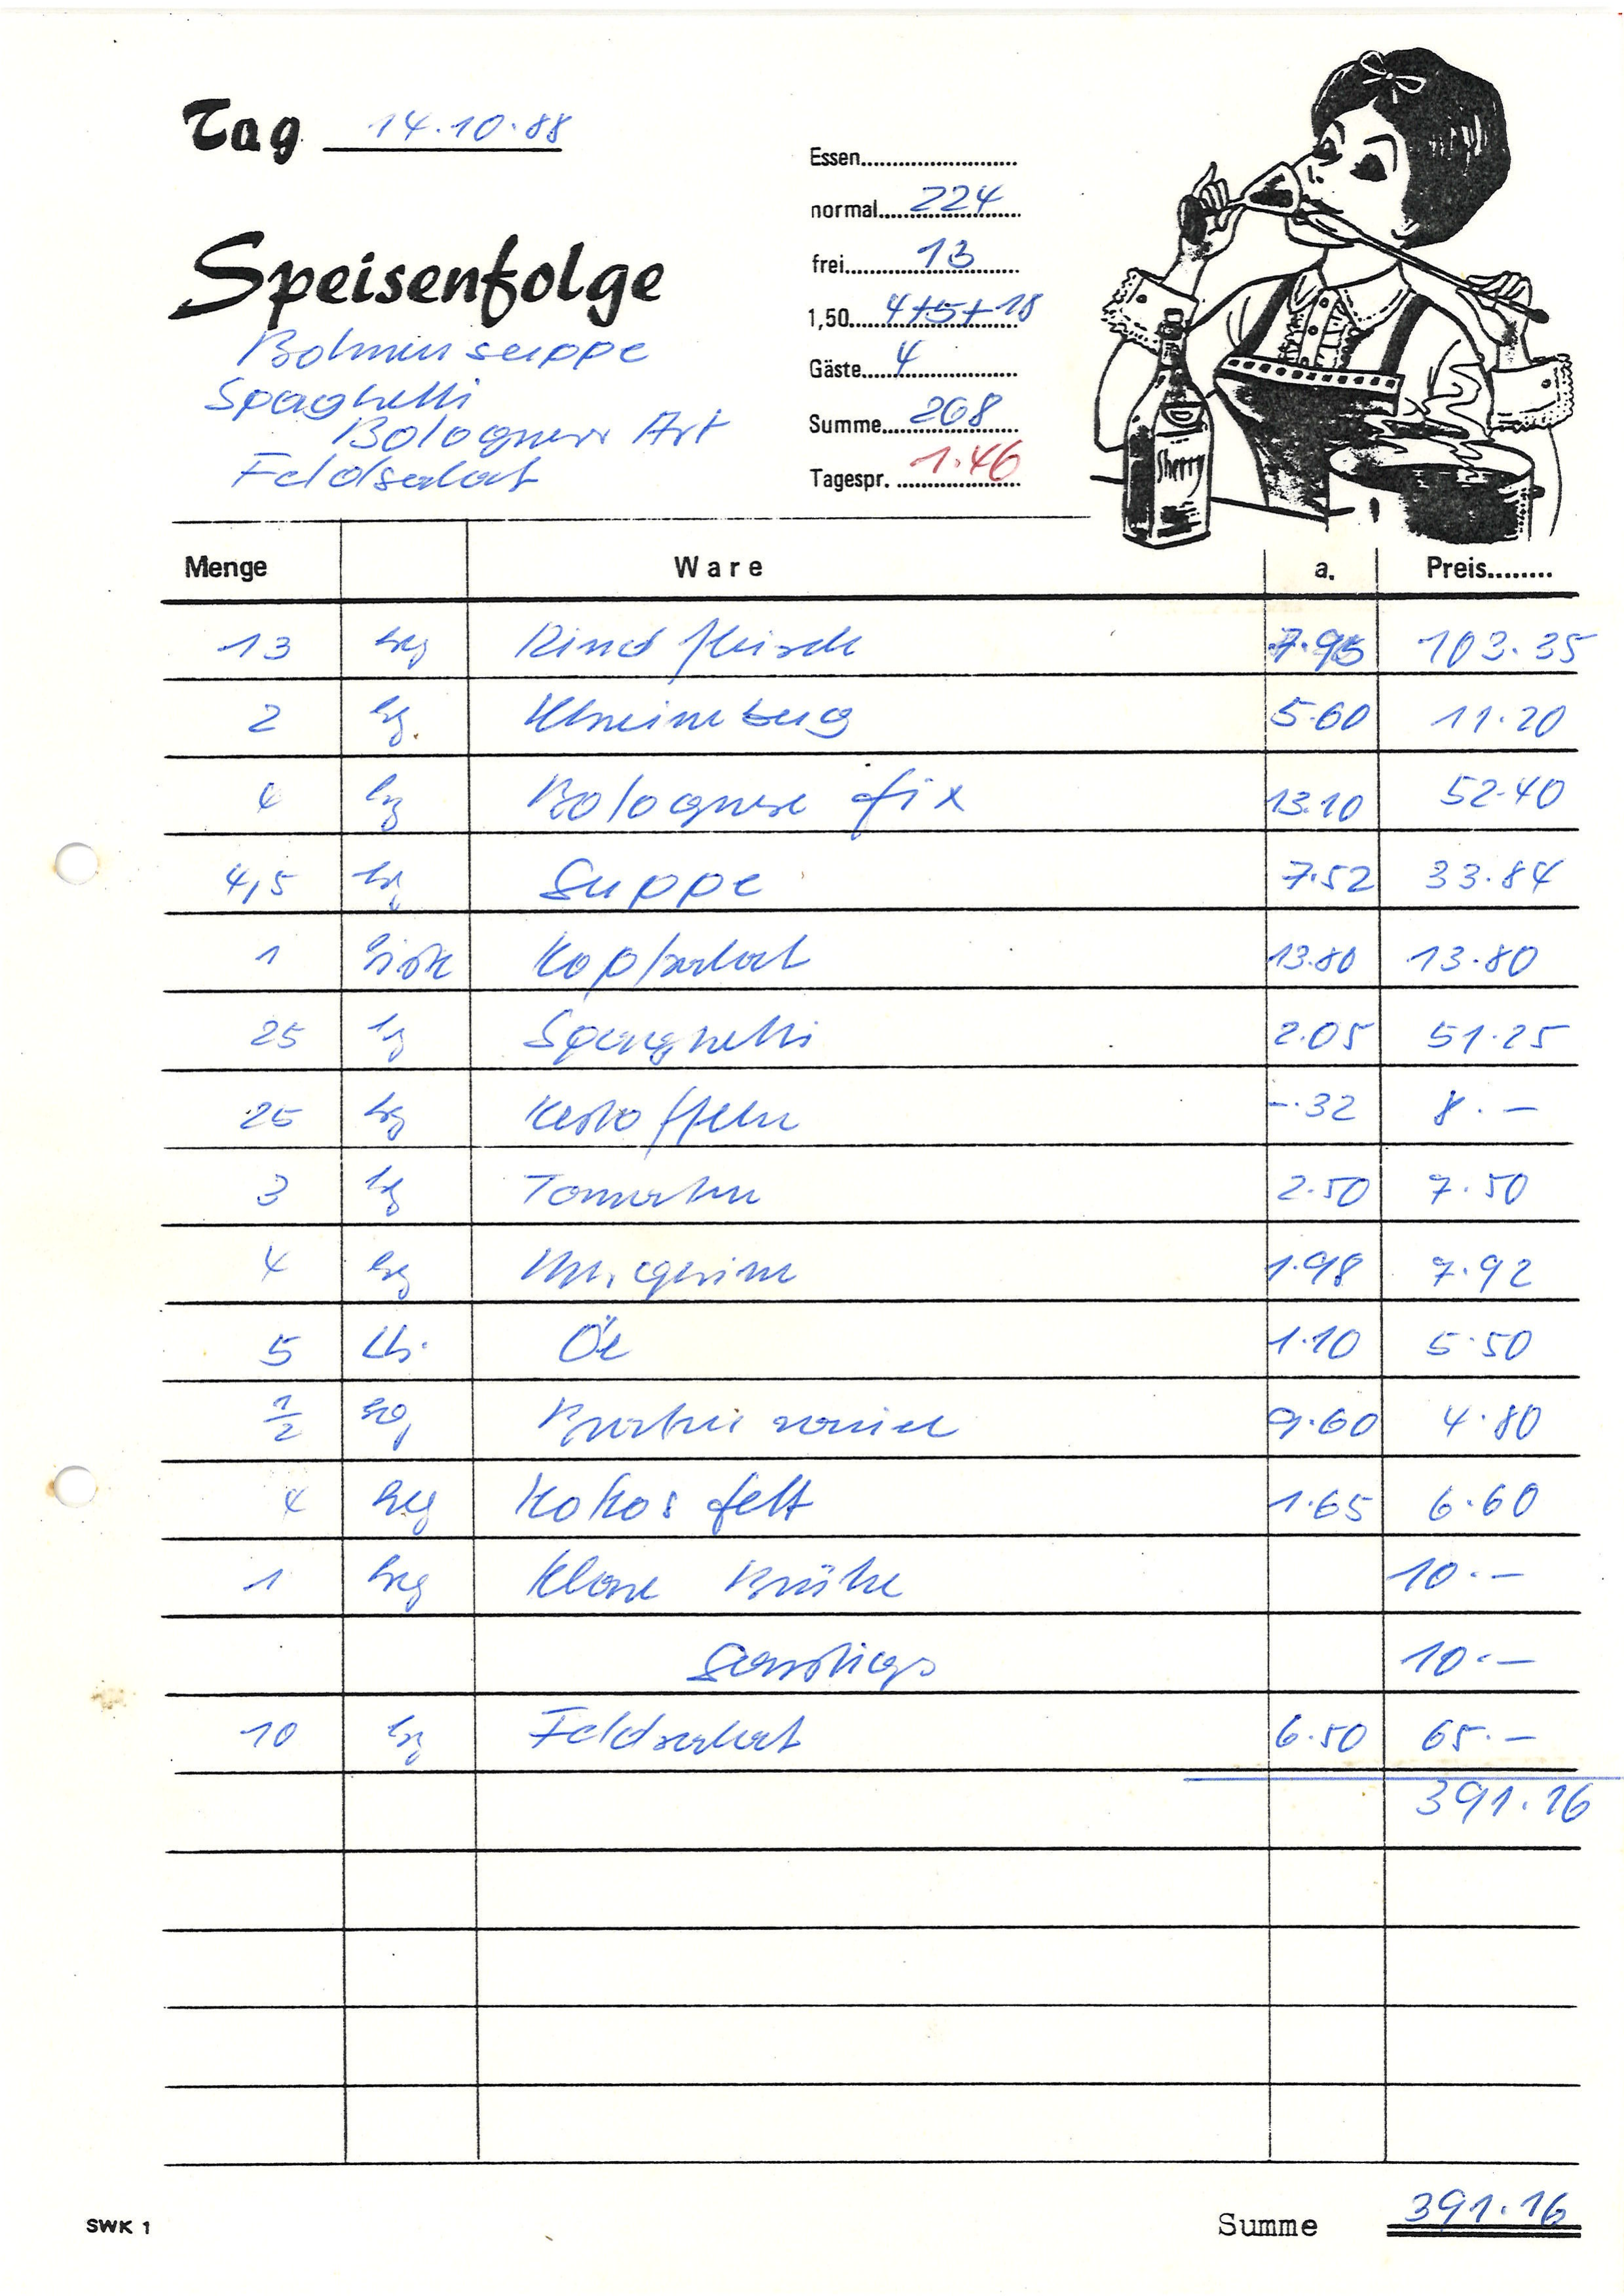 Tag 14.10.88
Speisenfolge
Bohnensuppe
Spaghetti
Bologneser Art
Feldsalat
Essen
normal 224
frei 13
1,50 4+5+18
Gäste 4
Summe 268
Tagespr. 1.46
Sherry
Menge Ware a. Preis
13 kg Rindfleisch 7.95 103.35
2 kg 5.60 11.20
4 kg Bolognese fix 13.10 52.40
4,5 kg Suppe 7.52 33.84
1 Kiste Kopfsalat 13.80 13.80
25 kg Spaghetti 2.05 51.25
25 kg Kartoffeln -.32 8.-
3 kg Tomaten 2.50 7.50
4 kg Margarine 1.98 7.92
5 Ltr. Öl 1.10 5.50
1/2 kg 9.60 4.80
4 kg Kokosfett 1.65 6.60
1 kg Klare Brühe 10.-
Sonstiges 10.-
10 kg Feldsalat 6.50 65.-
391.16
SWK 1
Summe 391.16